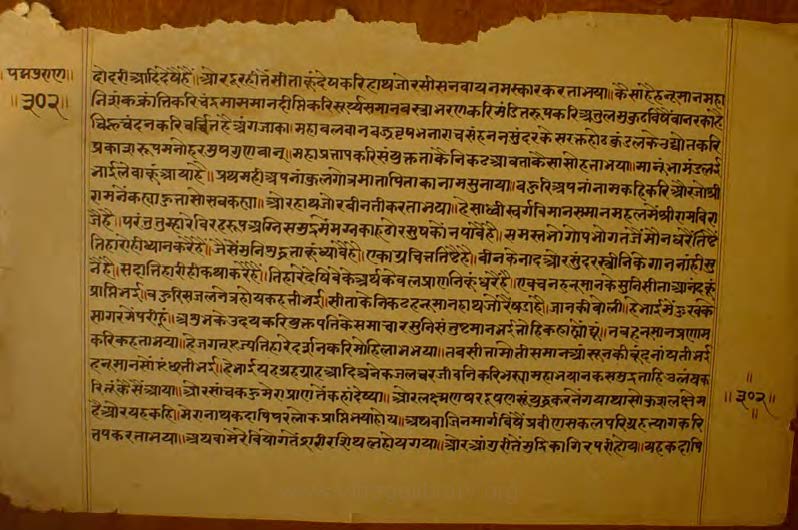 पद्मपुराण
॥३०२॥
दोदरी आदि देषैहैं॥ और दूरहीतैं सीताकूं देष करि हाथ जोर सीस नवाय नमस्कार करता भया॥ कैसा है हनूमान महा
निशंक क्रांति करि चंद्रमा समान दीप्ति करि सूर्य समान वस्त्राभरण करि मंडित रूप करि अतुल मुकुटविषैं वानरका है
चिह्न चंदन करि चर्चित है अंग जाका॥ महा बलवान वज्रवृषभनाराचसंहनन सुंदर केस रक्त होठ कुंडलके उद्योत करि
प्रकाश रूप मनोहर मुष गुणवान्॥ महा प्रताप करि संयुक्त ताकै निकट आवता कैसा सोहता भया॥ मानूं भामंडल भाई
लेवाकूं आयाहै॥ प्रथमही अपनां कुल गोत्र माता पिताका नाम सुनाया॥ बहुरि अपनां नाम कहि करि और जो श्री
रामनैं कह्या हुता सो सब कह्या॥ और हाथ जोर वीनती करता भया॥ हे साध्वी स्वर्ग विमान समान महलमें श्री राम विरा
जैहै॥ परंतु तुम्हारे विरहरूप अग्नि समुद्रमें मग्न काहू ठोर सुषकों न पावैहै॥ समस्त भोगोपभोग तजें मौन धरें तिष्टें
तिहारोही ध्यान करैहैं॥ जैसें मुनि मुक्तताकूं ध्यावैहै॥ एकाग्रचित्त तिष्टैहै॥ वीनका नाद और सुंदर स्त्रीनिके गान नांही सु
नैहैं॥ सदा तिहारीही कथा करैहैं॥ तिहारे देषिवेके अर्थ केवल प्राणनिकूं धरैहै॥ ए वचन हनूमानके सुनि सीता आनंदकूं
प्राप्ति भई॥ बहुरि सजल नेत्र होय कहती भई॥ सीताके निकट हनूमान हाथ जोरे षडाहै॥ जानकी बोली॥ हे भाई मैं दुःखके
सागरमें परीहूं॥ अशुभके उदय करि युक्त पतिके समाचार सुनि संतुष्टमान भई तोहि कहा द्यूं॥ तब हनूमान प्रणाम
करि कहता भया॥ हे जगत्पूज्य तिहारे दर्शन करि मोहि लाभ भया॥ तब सीता मोती समान आंसूनकी बूंद नांषती भई
हनूमानसों पूछती भई॥ हे भाई यह ग्राह आदि अनेक जलचर जीवनि करि भस्या महा भयानक समुद्र ताहि उलंघ क
रि तूं कैसैं आया॥ और सांच कहु मेरा प्राणनाथ तैं कहां देष्या॥ और लक्ष्मण षरदूषणसूं युद्ध करनें गया था सो कुशल क्षेम
हैं और यह कहि॥ मेरा नाथ कदाचि परलोक प्राप्ति भया होय॥ अथवा जिनमार्गविषैं प्रवीण सकल परिग्रह त्याग करि
तप करता भया॥ अथवा मेरे वियोगतैं शरीर शिथल होय गया॥ और आंगुरीतैं मुद्रिका गिर परी होय॥ यह कदाचि
॥३०२॥